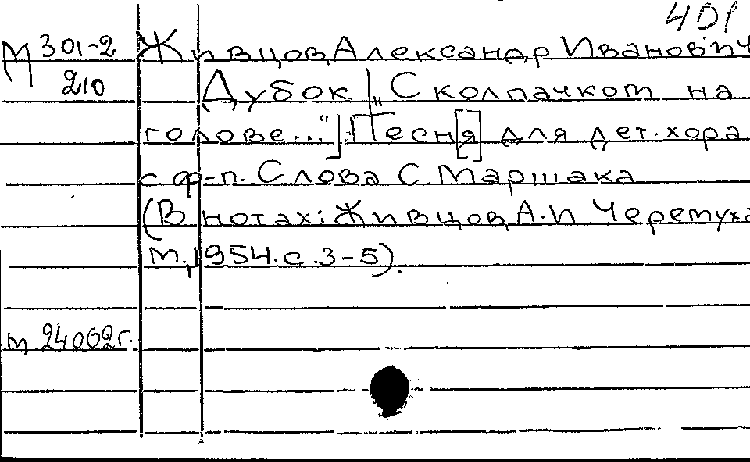 401
М 301-2 Живцов Александр Иванович
210 Дубок [„С колпачком на
голове..."] Песн[я] для дет. хора
с ф-п. Слова С. Маршака
(В нотах: Живцов А.И Черемуха
М., 1954. с. 3-5).
м 24002г.